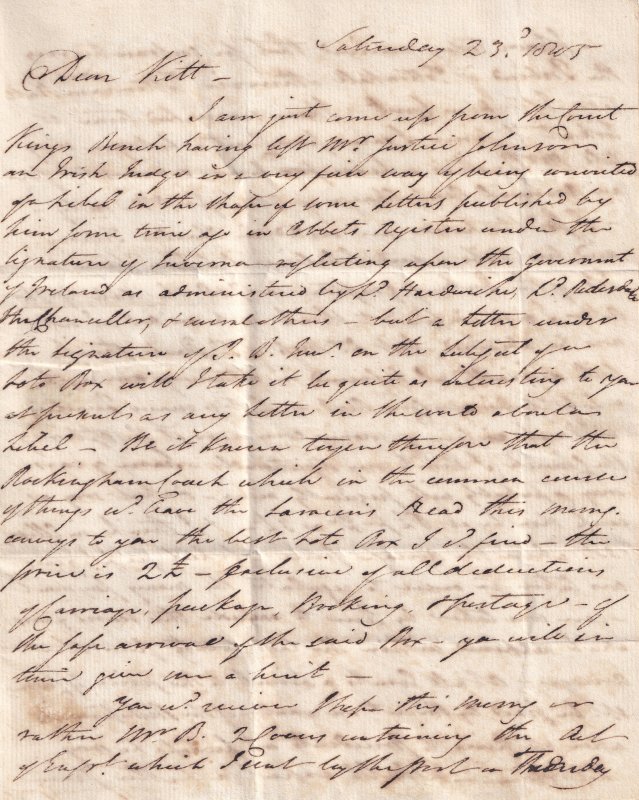 Saturday 23d. 1805
Dear Kitt –
I am just come up from the Court
Kings Bench having left Mr. Justice Johnson
an Irish Judge in a very fair way of being convicted
of a Libel in the shape of some Letters published by
him some time ago in Cobbets Register under the
signature of Juverna – reflecting upon the Goverment
of Ireland as administered by Ld. Hardwicke, Ld. Redesdale
the Chancellor, & several others – but a Letter under
the Signature of J. B. on the Subject of a
box will I take it be quite as interesting to you
at present as any Letter in the world about a
Libel – Be it known to you therefore that the
Rockingham Coach which in the common course
of things wd. leave the Saracens Head this morng.
conveys to you the best Box I cd. find – the
price is 2£ – Exclusive of all deductions
of carriage, package, Booking, & postage – of
the safe arrival of the said Box – you will in
turn give me a hint –
You wd. receive I hope this morng or
rather Mr B. 2 Covers containing the Act
of which I sent by the Post on Thursday